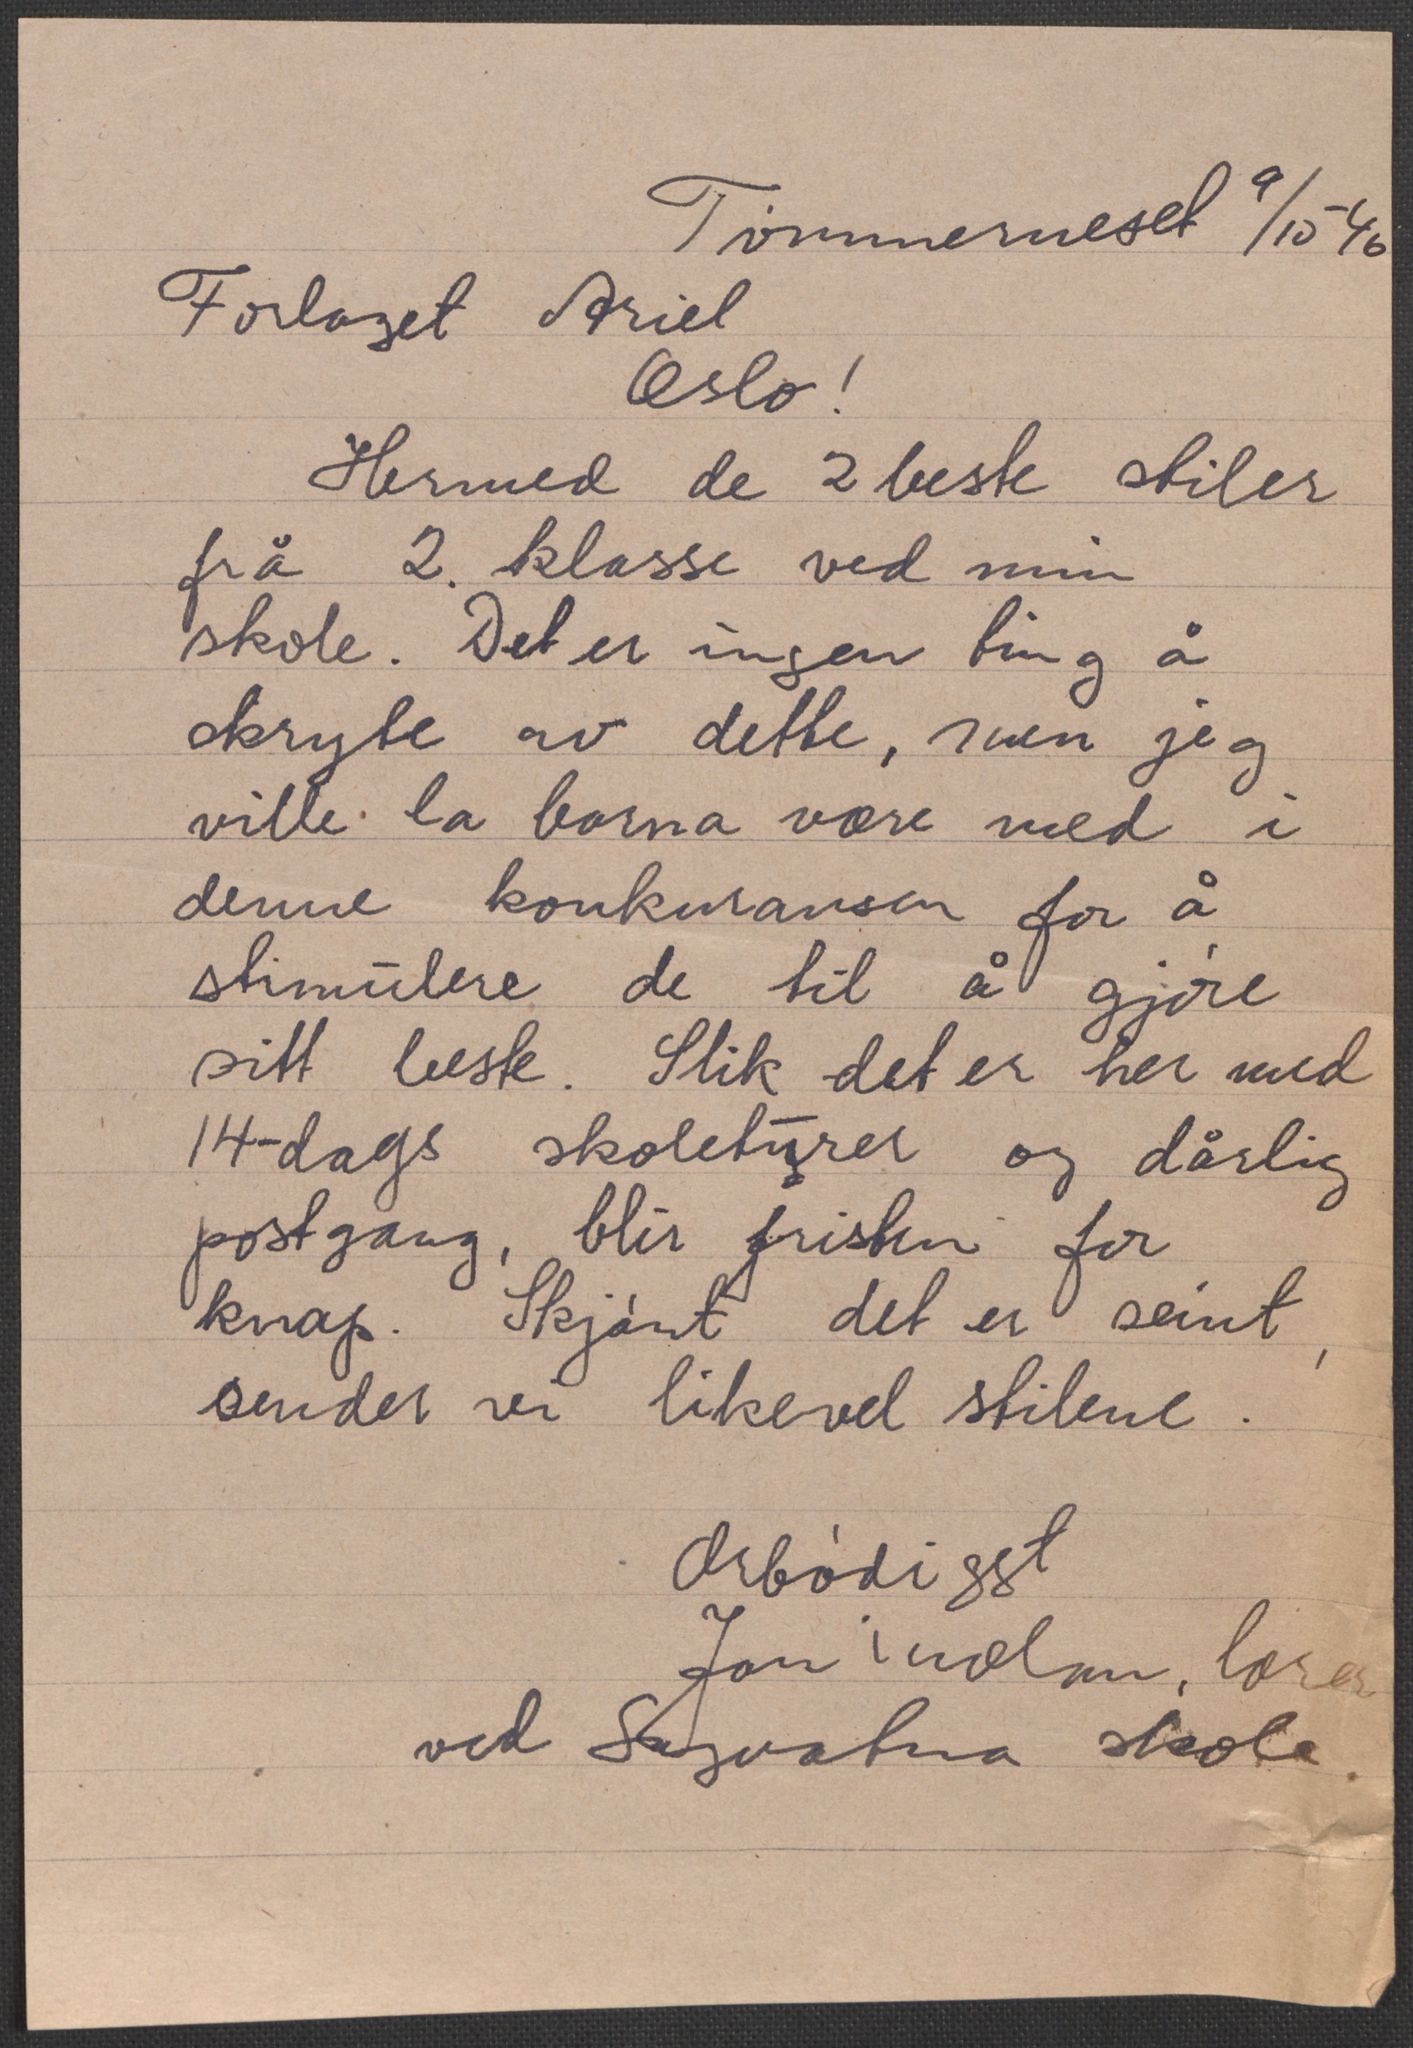 Tömmerneset 9/10-46
Forlaget Ariel
Oslo!
Hermed de 2 beste stiler
frå 2. klasse ved min
skole. Det er ingen ting å
skryte av dette, men jeg
ville la barna være med i
denne konkuransen for å
stimulere de til å gjöre
sitt beste. Slik det er her med
14-dags skoleturer og dårlig
postgang, blir fristen for
knap. Skjönt det er seint,
sender vi likevel stilene.
Ærbödigst
Jon , lærer
ved Sagvatna skole.